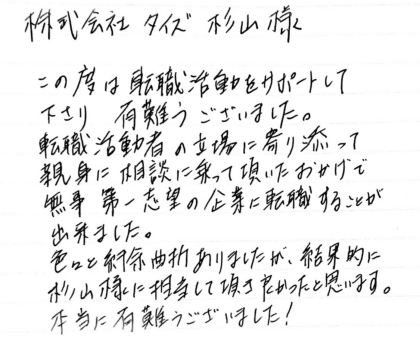 株式会社 タイズ 杉山 様
この度は転職活動をサポートして
下さり 有難うございました。
転職活動者の立場に寄り添って
親身に相談に乗って頂いたおかげで
無事 第一志望の企業に転職することが
出来ました。
色々と紆余曲折ありましたが、結果的に
杉山様に担当して頂き良かったと思います。
本当に有難うございました!